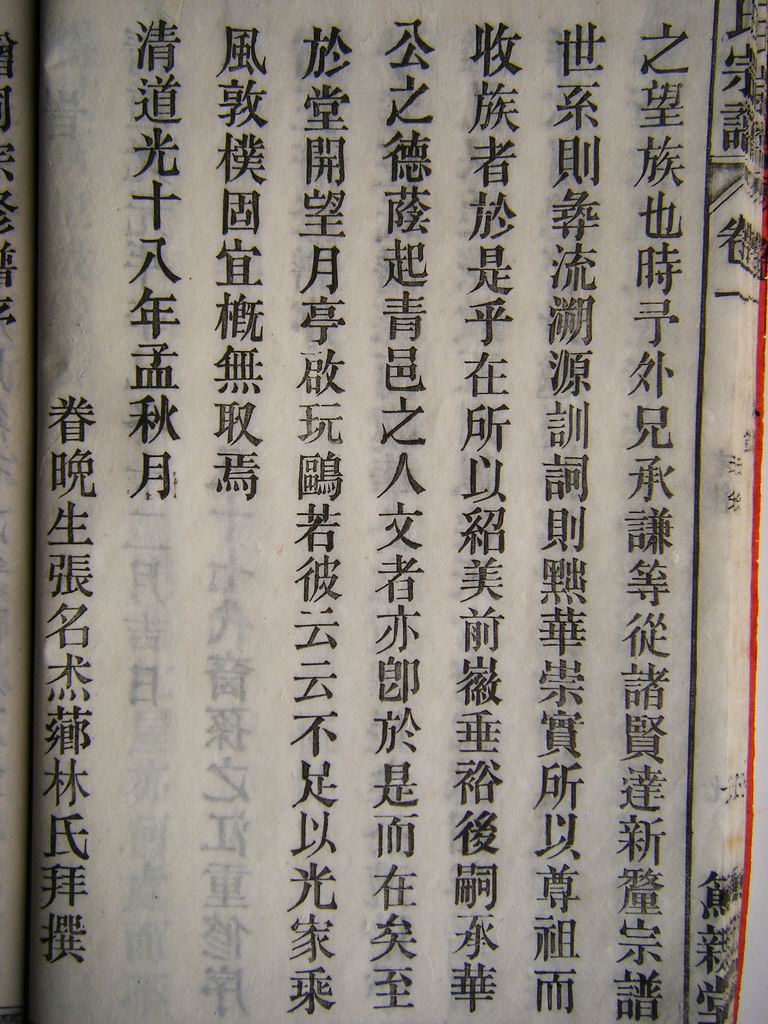 氏宗譜 卷一
之望族也時予外兄承謙等從諸賢達新釐宗譜
世系則彝流溯源訓詞則黜華崇實所以尊祖而
收族者於是乎在所以紹美前徽垂裕後嗣承華
公之德蔭起青邑之人文者亦卽於是而在矣至
於堂開望月亭啟玩鷗若彼云云不足以光家乘
風敦樸固宜槪無取焉
清道光十八年孟秋月
眷晚生張名杰薌林氏拜撰